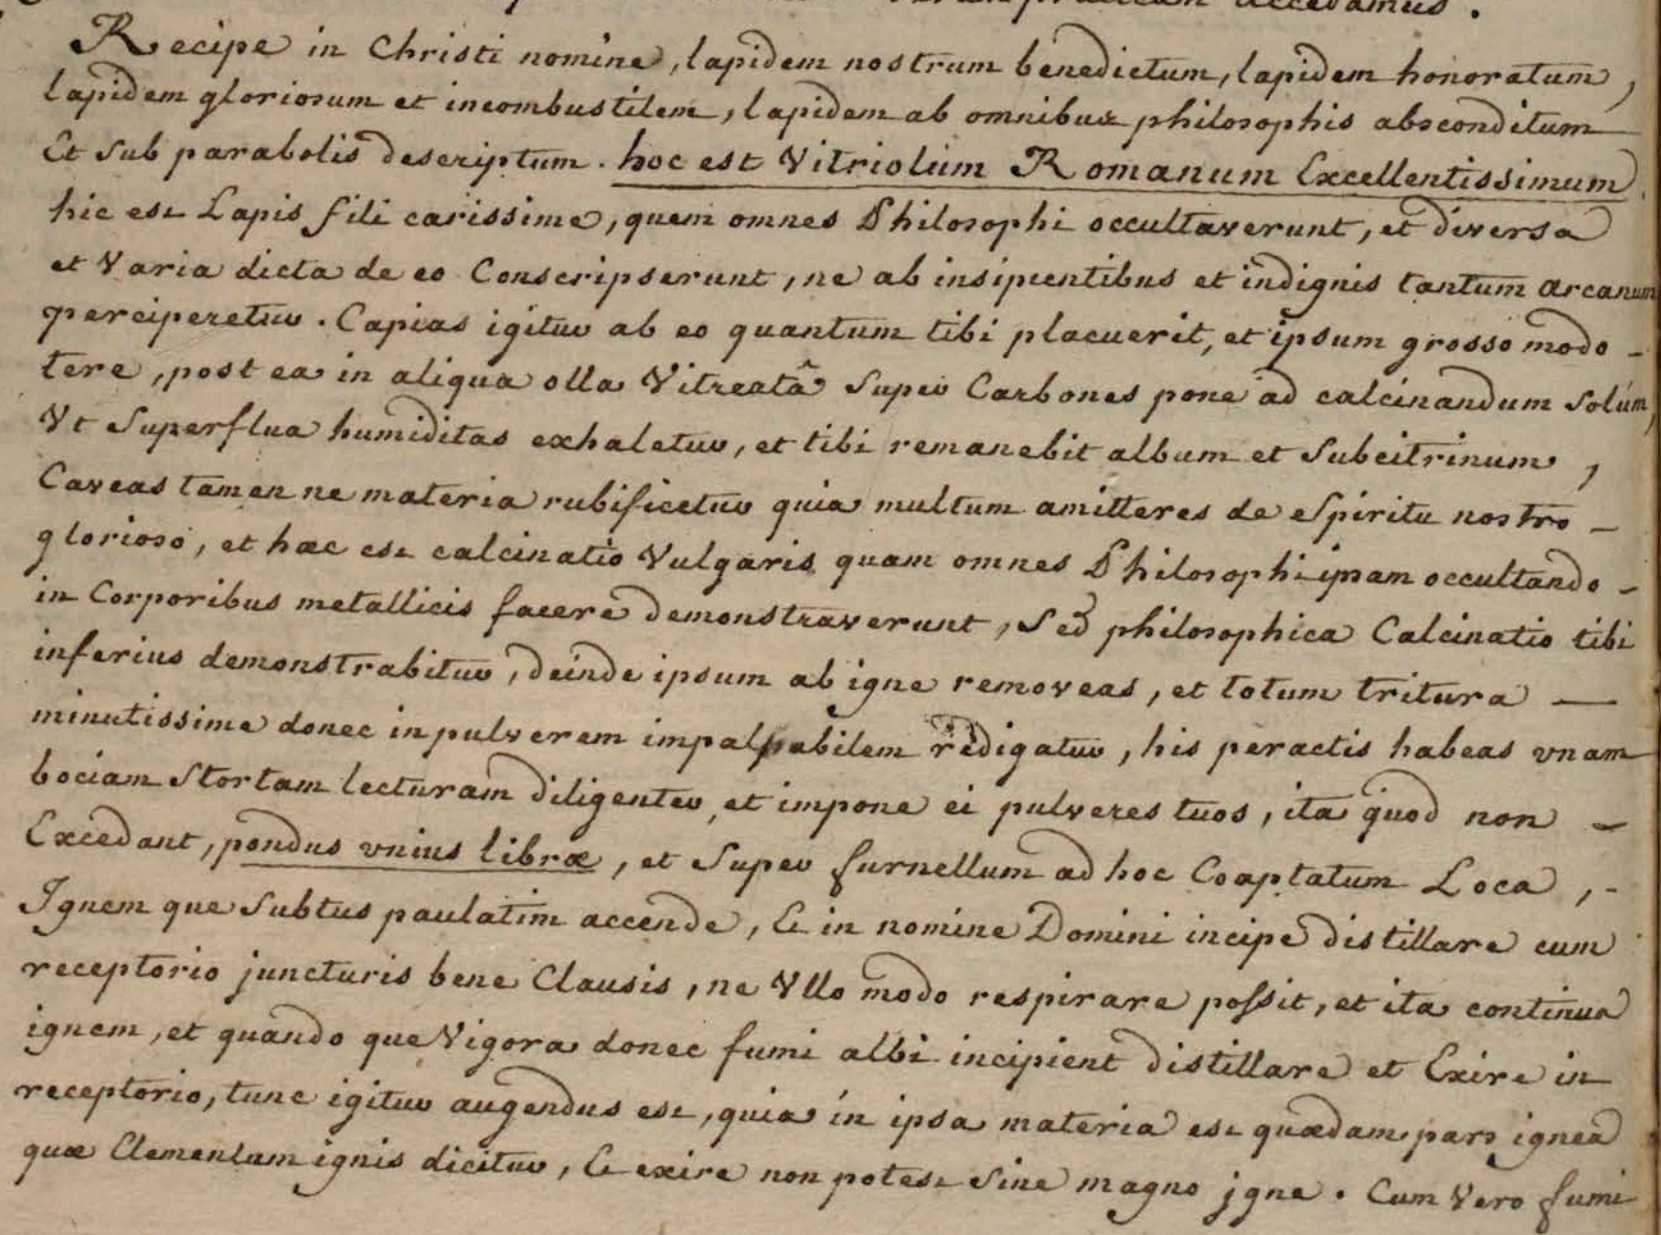 accedamus.
Recipe in Christi nomine, lapidem nostrum benedictum, lapidem honoratum,
lapidem gloriosum et incombustilem, lapidem ab omnibus philosophis absconditum
Et sub parabolis descriptum. hoc est Vitriolum Romanum Excellentissimum
hic est Lapis fili carissime, quem omnes Philosophi occultaverunt, et diversa
et Varia dicta de eo Conscripserunt, ne ab insipientibus et indignis tantum arcanum
perciperetur. Capias igitur ab eo quantum tibi placuerit, et ipsum grosso modo -
tere, post ea in aliqua olla Vitreatâ super Carbones pone ad calcinandum solúm,
Vt superflua humiditas exhaletur, et tibi remanebit album et subcitrinum,
Caveas tamen ne materia rubificetur quia multum amitteres de spiritu nostro -
glorioso, et hæc est calcinatio Vulgaris quam omnes Philosophi ipsam occultando -
in Corporibus metallicis facere demonstraverunt, sed philosophica Calcinatio tibi
inferius demonstrabitur, deinde ipsum ab igne removeas, et totum tritura —
minutissime donec in pulverem impalpabilem redigatur, his peractis habeas vnam
bociam stortam lecturam diligenter, et impone ei pulveres tuos, ita quod non -
Excedant, pondus vnius libræ, et super furnellum ad hoc Coaptatum Loca, -
Ignem que subtus paulatim accende, & in nomine Domini incipe distillare cum
receptorio juncturis bene Clausis, ne Vllo modo respirare possit, et ita continua
ignem, et quando que Vigora donec fumi albi incipient distillare et Exire in
receptorio, tunc igitur augendus est, quia in ipsa materia est quædam pars ignea
quæ Elementum ignis dicitur, & exire non potest sine magno jgne. Cum Vero fumi